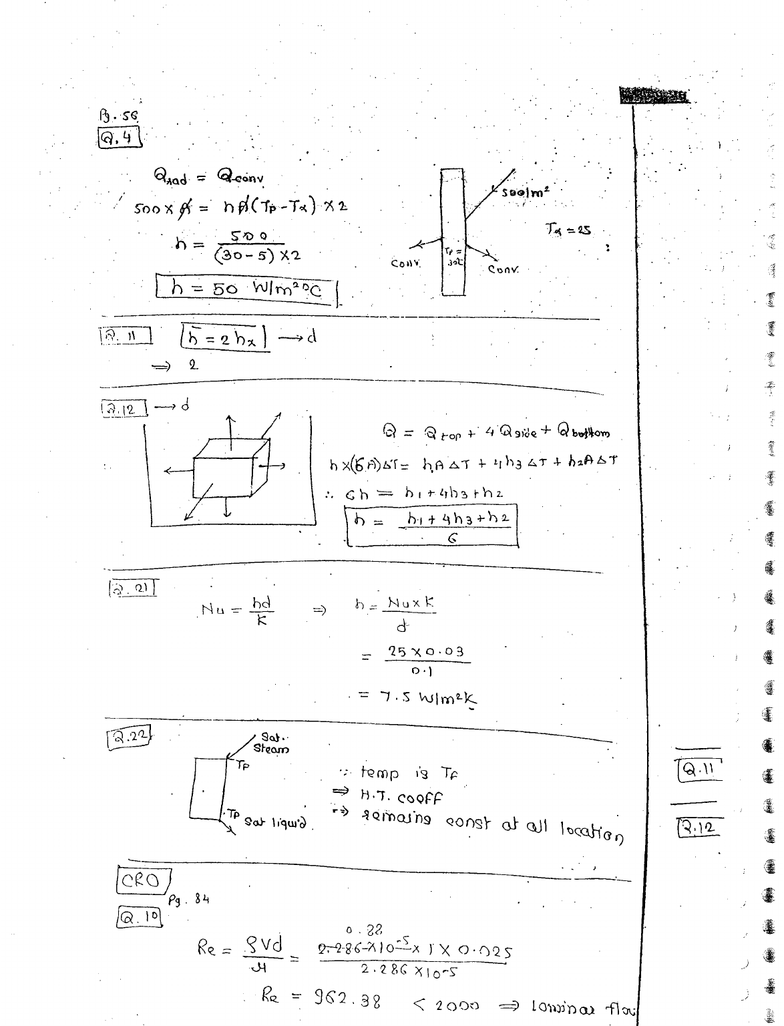 Pg. 56
Q.4
Qrad = Qconv
500 × A = hA(Tp - T∝) × 2
h = 500 / (30-5) × 2
h = 50 W/m²°C
500/m²
T∝ = 25
Tp = 30°C
Conv.
Conv.
Q. 11
h̄ = 2hx → d
⇒ 2
Q.12 → d
Q = Qtop + 4 Qside + Qbottom
h×(6A)ΔT = hAΔT + 4h3ΔT + h2AΔT
∴ 6h = h1 + 4h3 + h2
h = h1 + 4h3 + h2 / 6
Q. 21
Nu = hd/K ⇒ h = Nu×K / d
= 25 × 0.03 / 0.1
= 7.5 W/m²K
Q.22
Sat. Steam
Tp
Tp
Sat liquid.
∵ temp is Tf
⇒ H.T. coeff
⇒ remains const at all location
Q.11
Q.12
CRO
Pg. 84
Q. 10
0.88
Re = ρVd/μ = 2.286×10-5 × 1 × 0.025 / 2.286 ×10-5
Re = 962.38 < 2000 ⇒ laminar flow